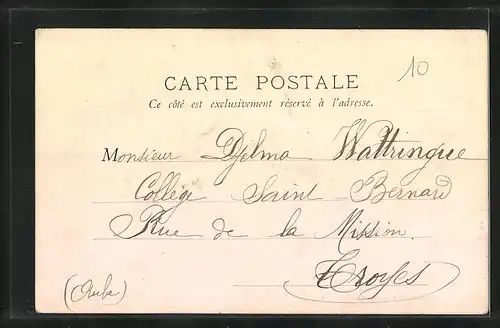 10
CARTE POSTALE
Ce côté est exclusivement réservé à l'adresse.
Monsieur Djelma Wattringue
Collège Saint Bernard
Rue de la Mission.
Troyes
(Aube)